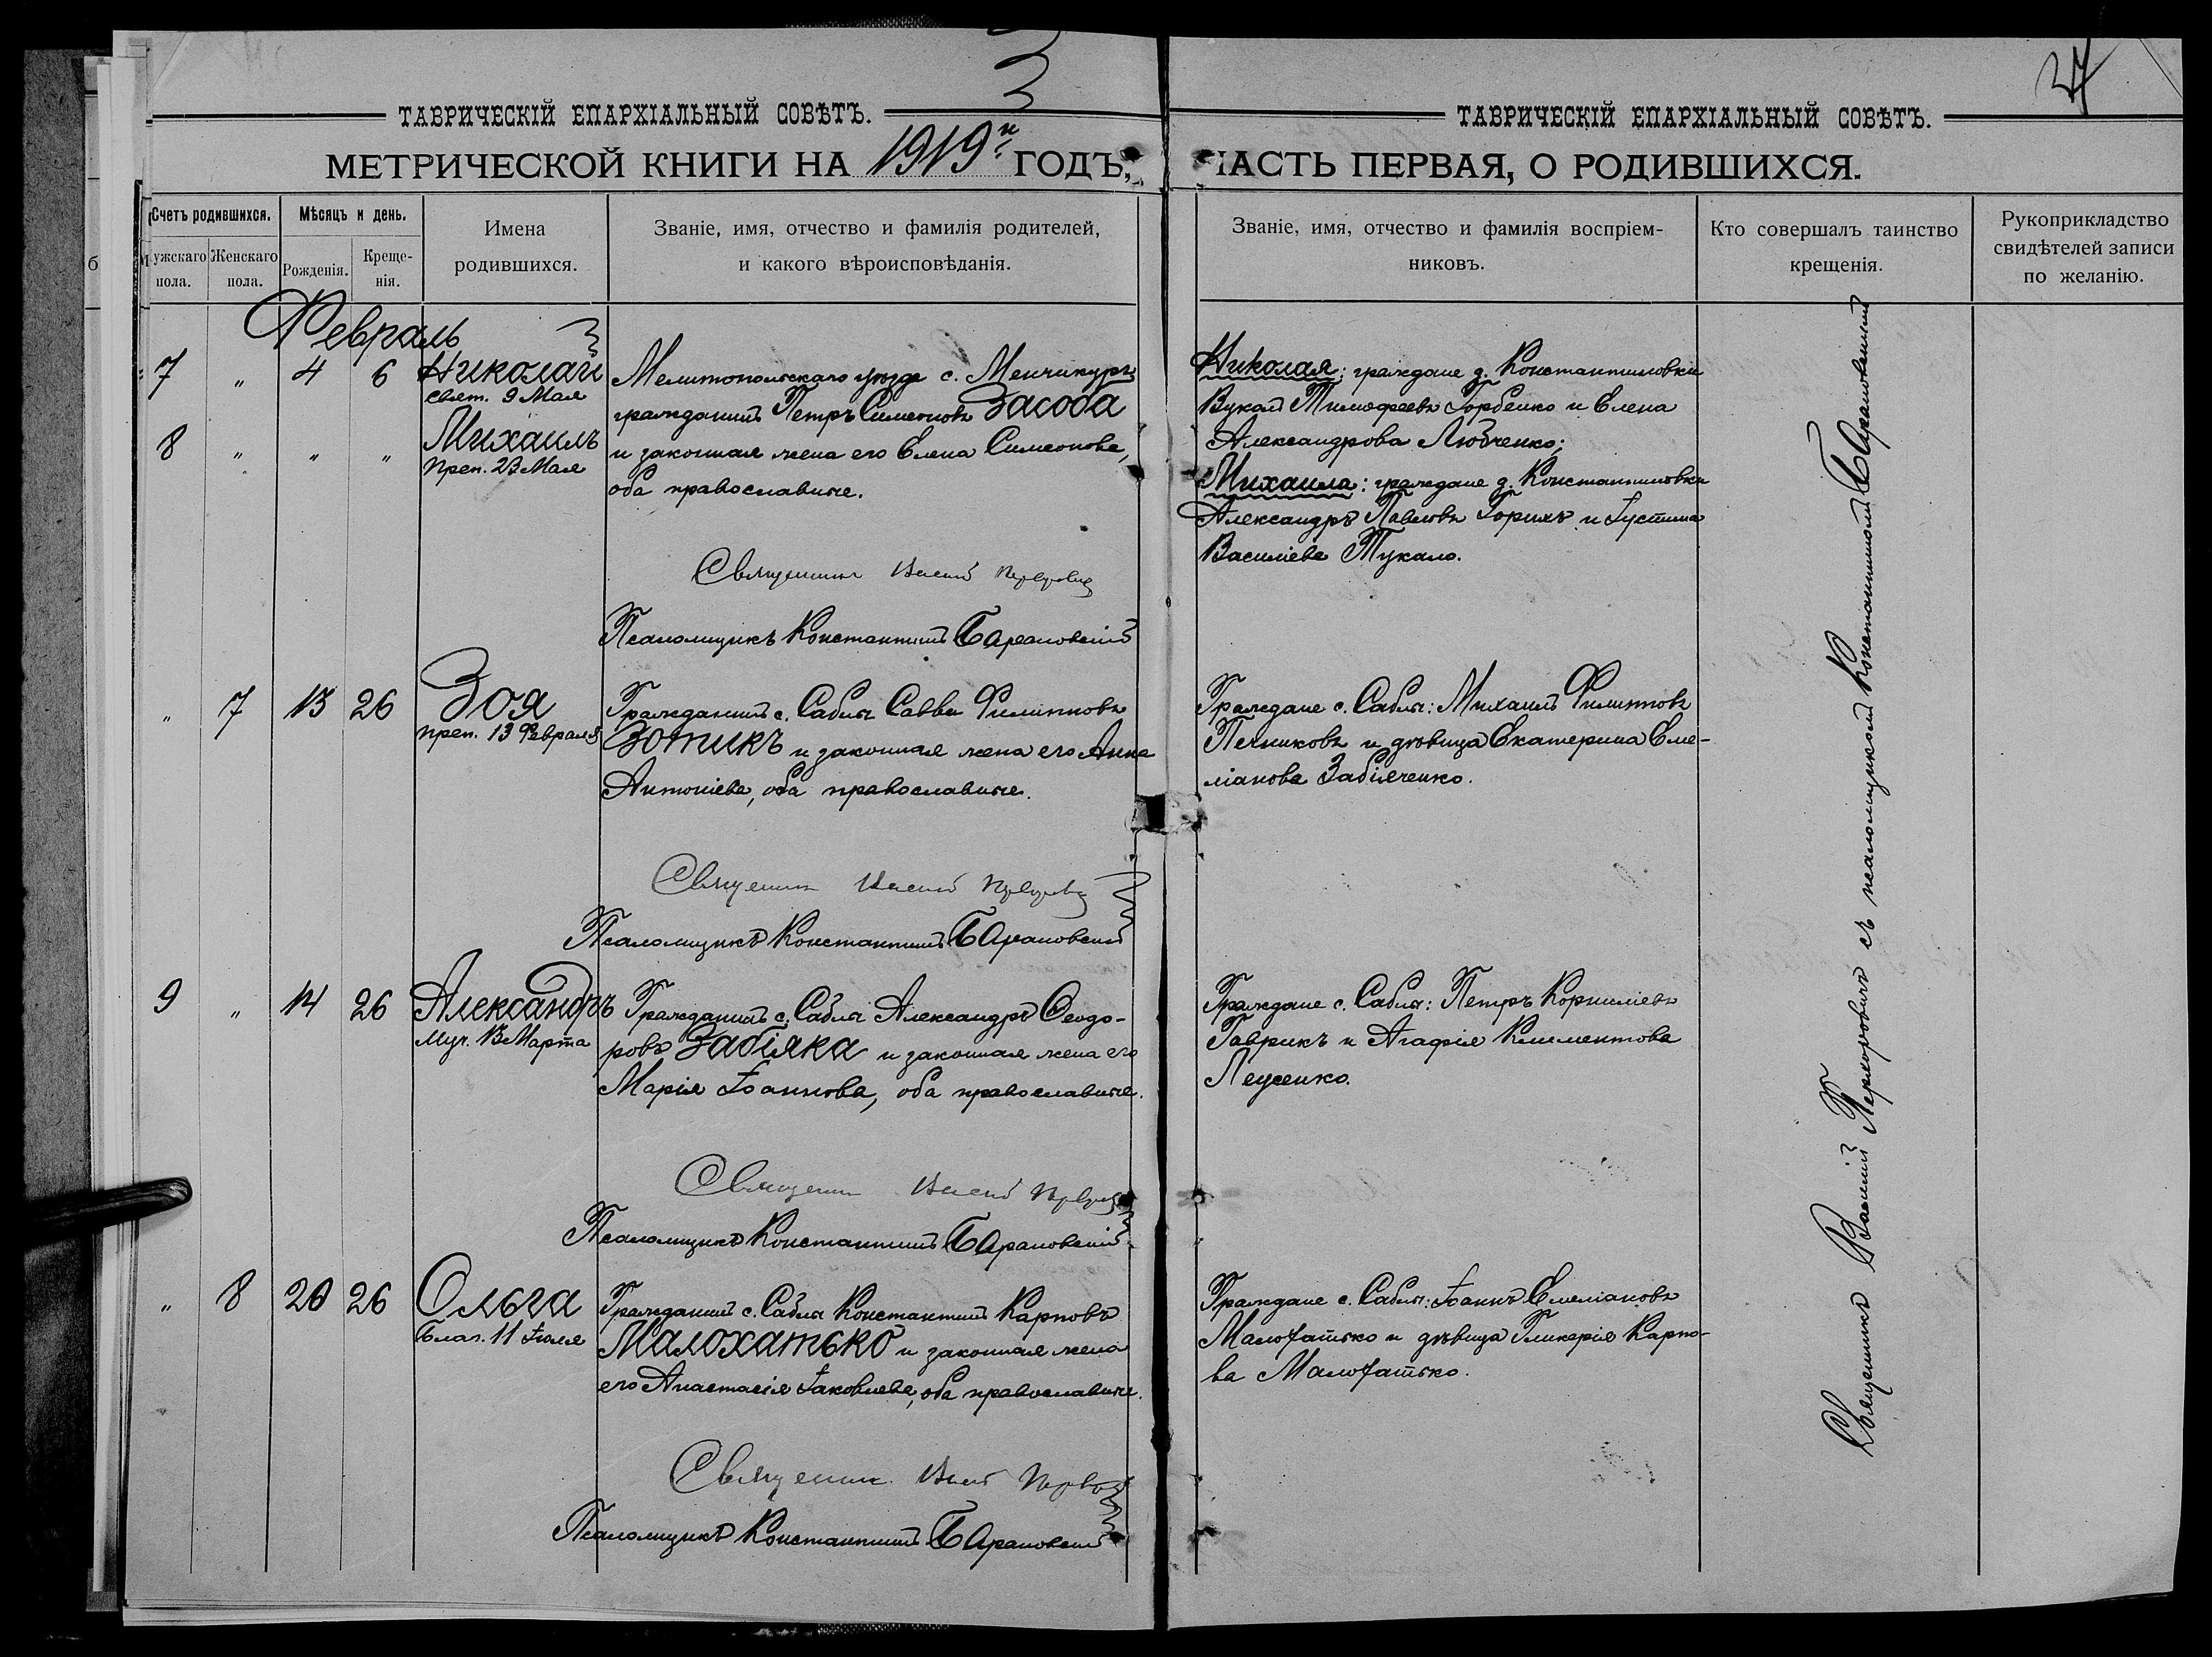 3
27
ТАВРИЧЕСКІЙ ЕПАРХІАЛЬНЫЙ СОВѢТЪ.
МЕТРИЧЕСКОЙ КНИГИ НА 1919й ГОДЪ,
Счетъ родившихся.
Мужскаго пола.
Женскаго пола.
Мѣсяцъ и день.
Рожденія.
Креще-
нія.
Имена
родившихся.
Званіе, имя, отчество и фамилія родителей,
и какого вѣроисповѣданія.
ТАВРИЧЕСКІЙ ЕПАРХІАЛЬНЫЙ СОВѢТЪ.
ЧАСТЬ ПЕРВАЯ, О РОДИВШИХСЯ.
Званіе, имя, отчество и фамилія воспріем-
никовъ.
Кто совершалъ таинство
крещенія.
Рукоприкладство
свидѣтелей записи
по желанію.
Февраль
7 " 4 6 Николай
свят. 9 Мая
8 " " " Михаилъ
Преп. 23 Мая
Мелитопольскаго уѣзда с. Менчикуръ
гражданинъ Петръ Симеоновъ Засоба
и законная жена его Елена Симеонова,
оба православные.
Священникъ Василій Перворовичъ
Псаломщикъ Константинъ Барановскій
Николая: граждане д. Константиновки
Вукол Тимофеевъ Горбенко и Елена
Александрова Любченко;
Михаила: граждане д. Константиновки
Александръ Павловъ Горихъ и Іустина
Василіева Тукало.
" 7 13 26 Зоя
преп. 13 Февраля
Гражданинъ с. Саблы Савва Филипповъ
Зотикъ и законная жена его Анна
Антоніева, оба православные.
Священникъ Василій
Псаломщикъ Константинъ Барановскій
Граждане с. Саблы: Михаилъ Филипповъ
Печниковъ и дѣвица Екатерина Еме-
ліанова Забіяченко.
9 " 14 26 Александръ
Муч. 13 Марта
Гражданинъ с. Саблы Александръ Ѳеодо-
ровъ Забіяка и законная жена его
Марія Іоаннова, оба православные.
Священникъ Василій
Псаломщикъ Константинъ Барановскій
Граждане с. Саблы: Петръ Корниліевъ
Гаврикъ и Агафія Климентова
Леусенко.
" 8 20 26 Ольга
Благ. 11 Іюля
Гражданинъ с. Саблы Константинъ Карповъ
Малохатько и законная жена
его Анастасія Іаковлева, оба православные.
Священникъ Василій
Псаломщикъ Константинъ Барановскій
Граждане с. Саблы: Іоаннъ Емеліановъ
Малохатько и дѣвица Гликерія Карпо-
ва Малохатько.
Священникъ Василій съ псаломщикомъ Константиномъ Барановскимъ